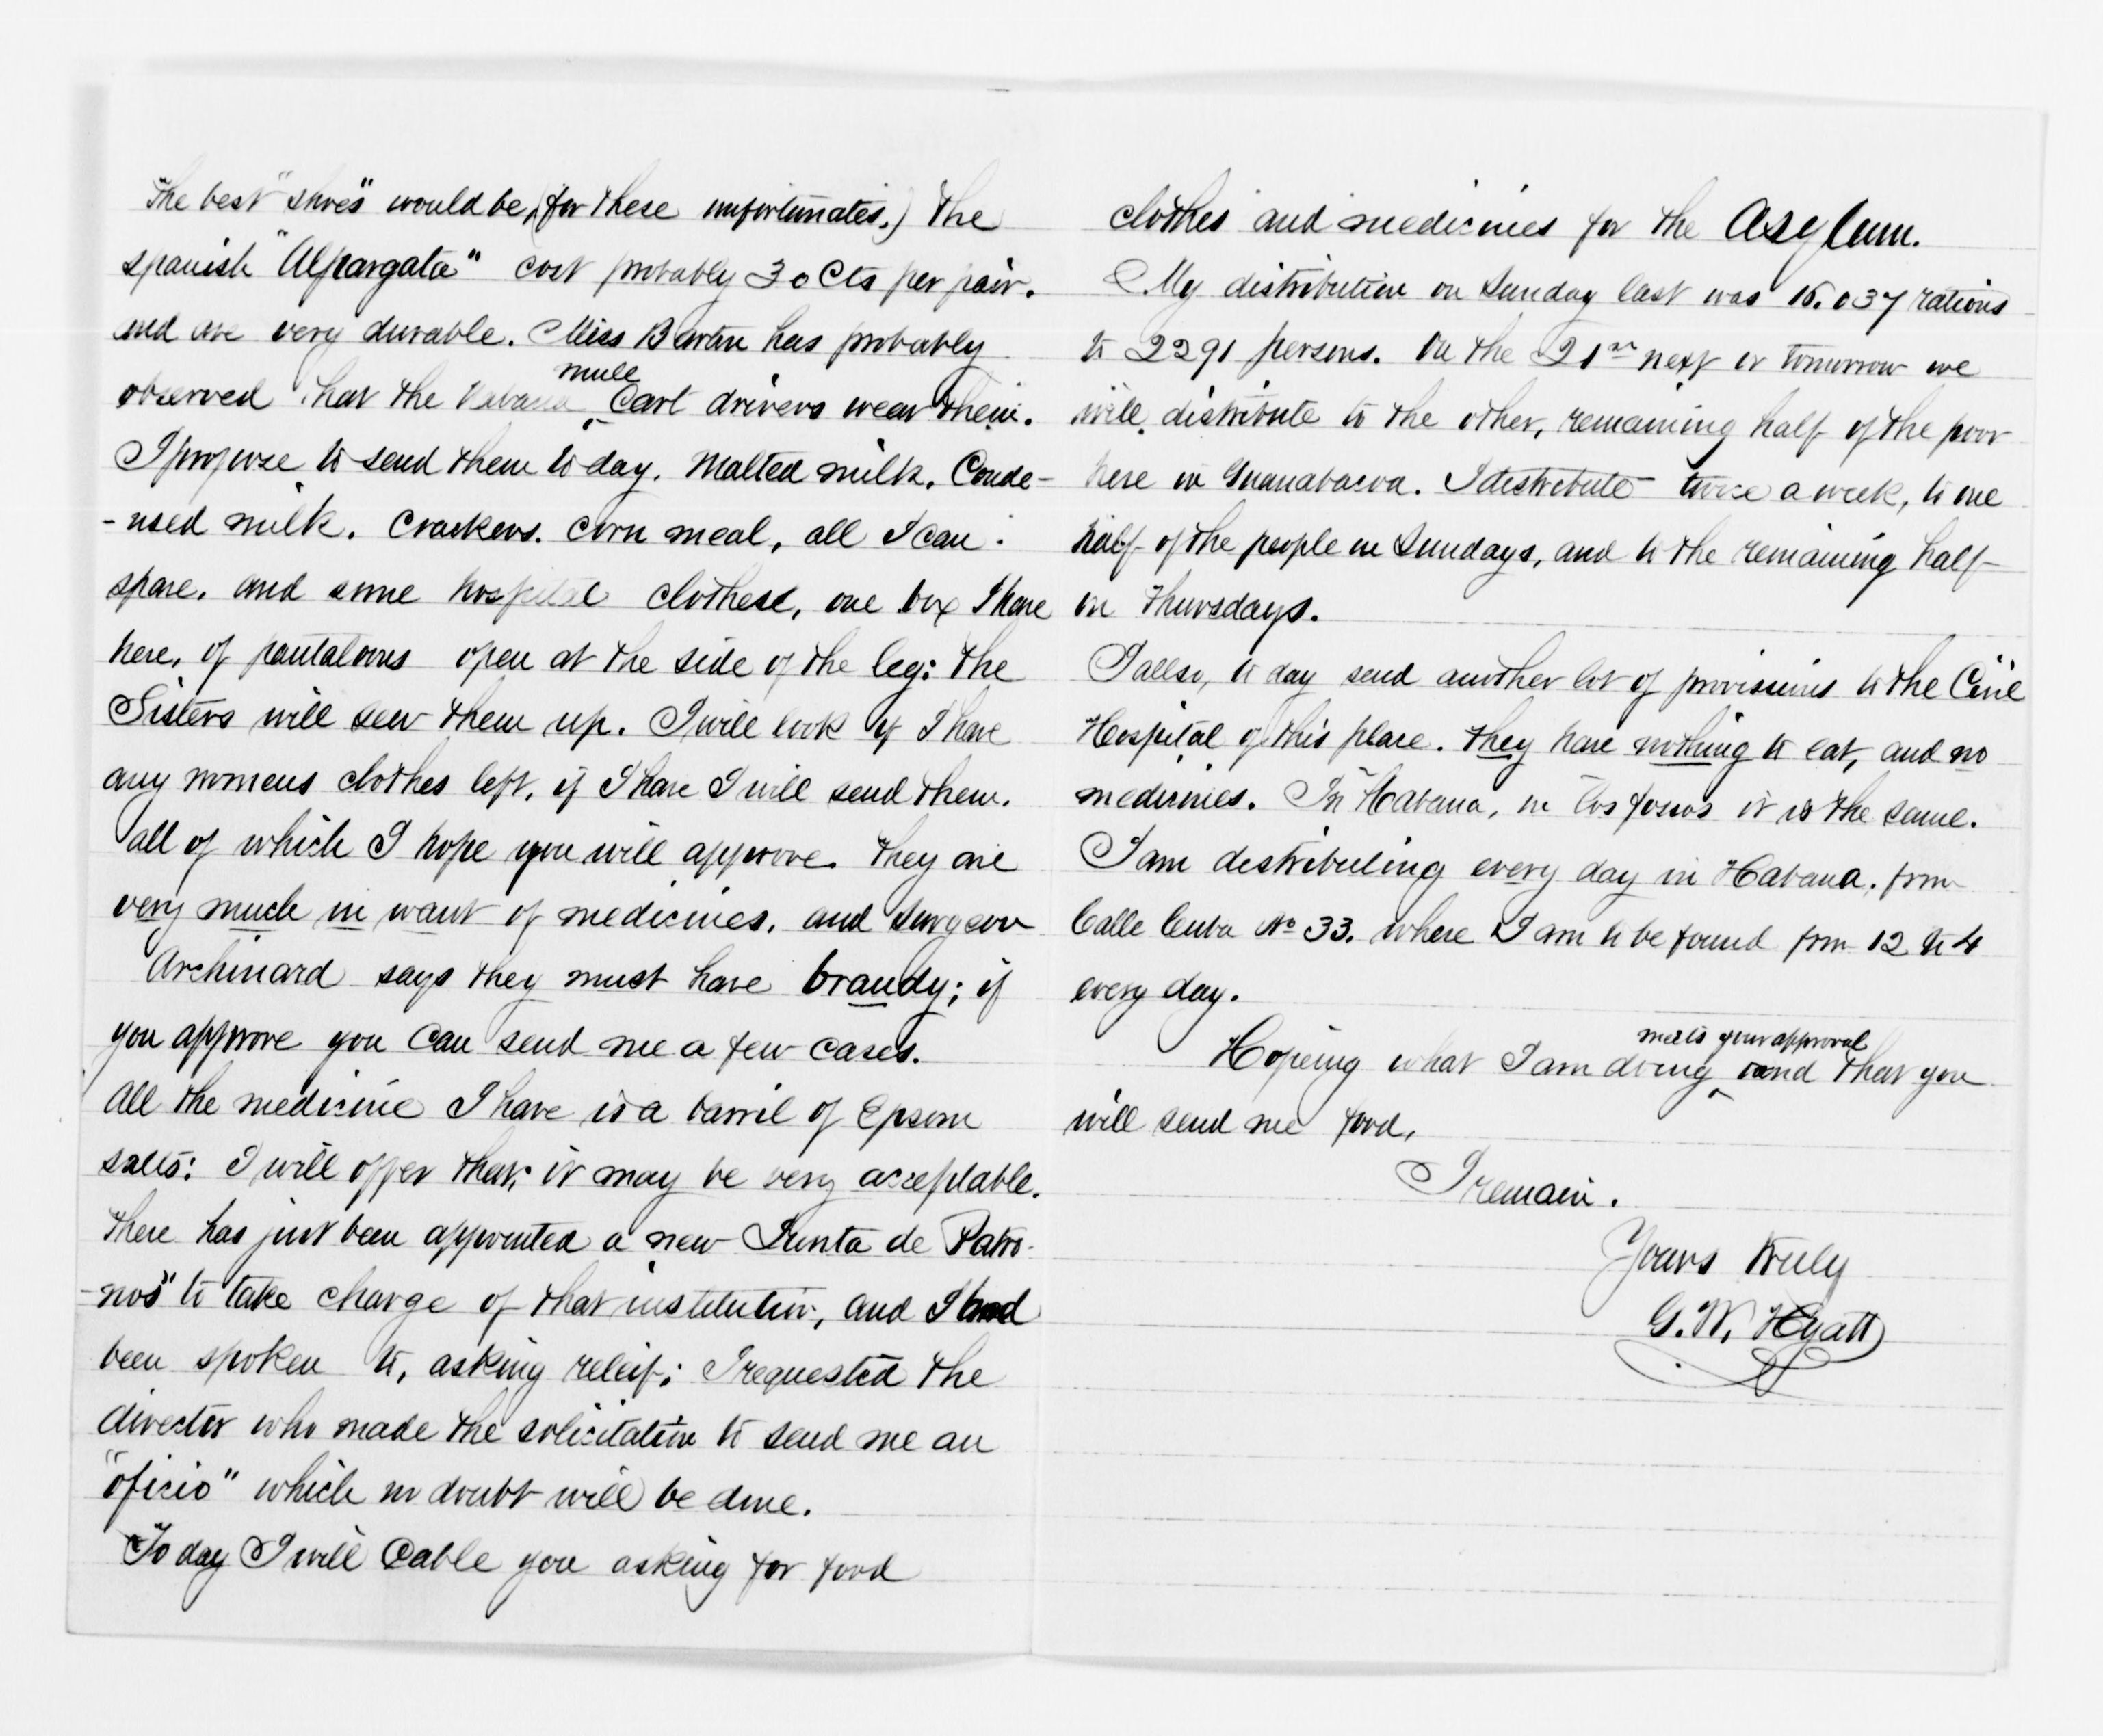 The best "shoes" would be, (for these unfortunates.) the
spanish "Alpargata" cost probably 30 Cts per pair.
and are very durable. Miss Barton has probably
mule
observed that the Habana Cart drivers wear them.
I propose to send them to day. Malted milk. Conde-
-nsed milk. Crackers. corn meal, all I can
spare. and some hospital clothese, one box I have
here, of pantaloons open at the side of the leg: the
Sisters will sew them up. I will look if I have
any womens clothes left, if I have I will send them.
all of which I hope you will approve. They are
very much in want of medicines. and Surgeon
Archinard says they must have brandy; if
you approve you can send me a few cases.
All the medicine I have is a barril of Epsom
salts: I will offer that; it may be very acceptable.
There has just been appointed a new Junta de Patro-
-nos" to take charge of that institution, and I had
been spoken to, asking releif; I requested the
director who made the solicitation to send me an
"oficio" which no doubt will be done.
To day I will Cable you asking for food
clothes and medicines for the Asylum.
My distribution on Sunday last was 16.037 rations
to 2291 persons. On the 21st next or tomorrow we
will distribute to the other, remaining half of the poor
here in Guanabacoa. I distribute twice a week, to one
half of the people on Sundays, and to the remaining half
on Thursdays.
I allso, to day send another lot of provisions to the Civil
Hospital of this place. they have nothing to eat, and no
medicines. In Habana, in los fosos it is the same.
I am distributing every day in Habana, from
Calle Cuba No 33. where I am to be found from 12 to 4
every day.
meets your approval
Hopeing what I am doing and that you
will send me food,
I remain.
Yours truly
G. W. Hyatt